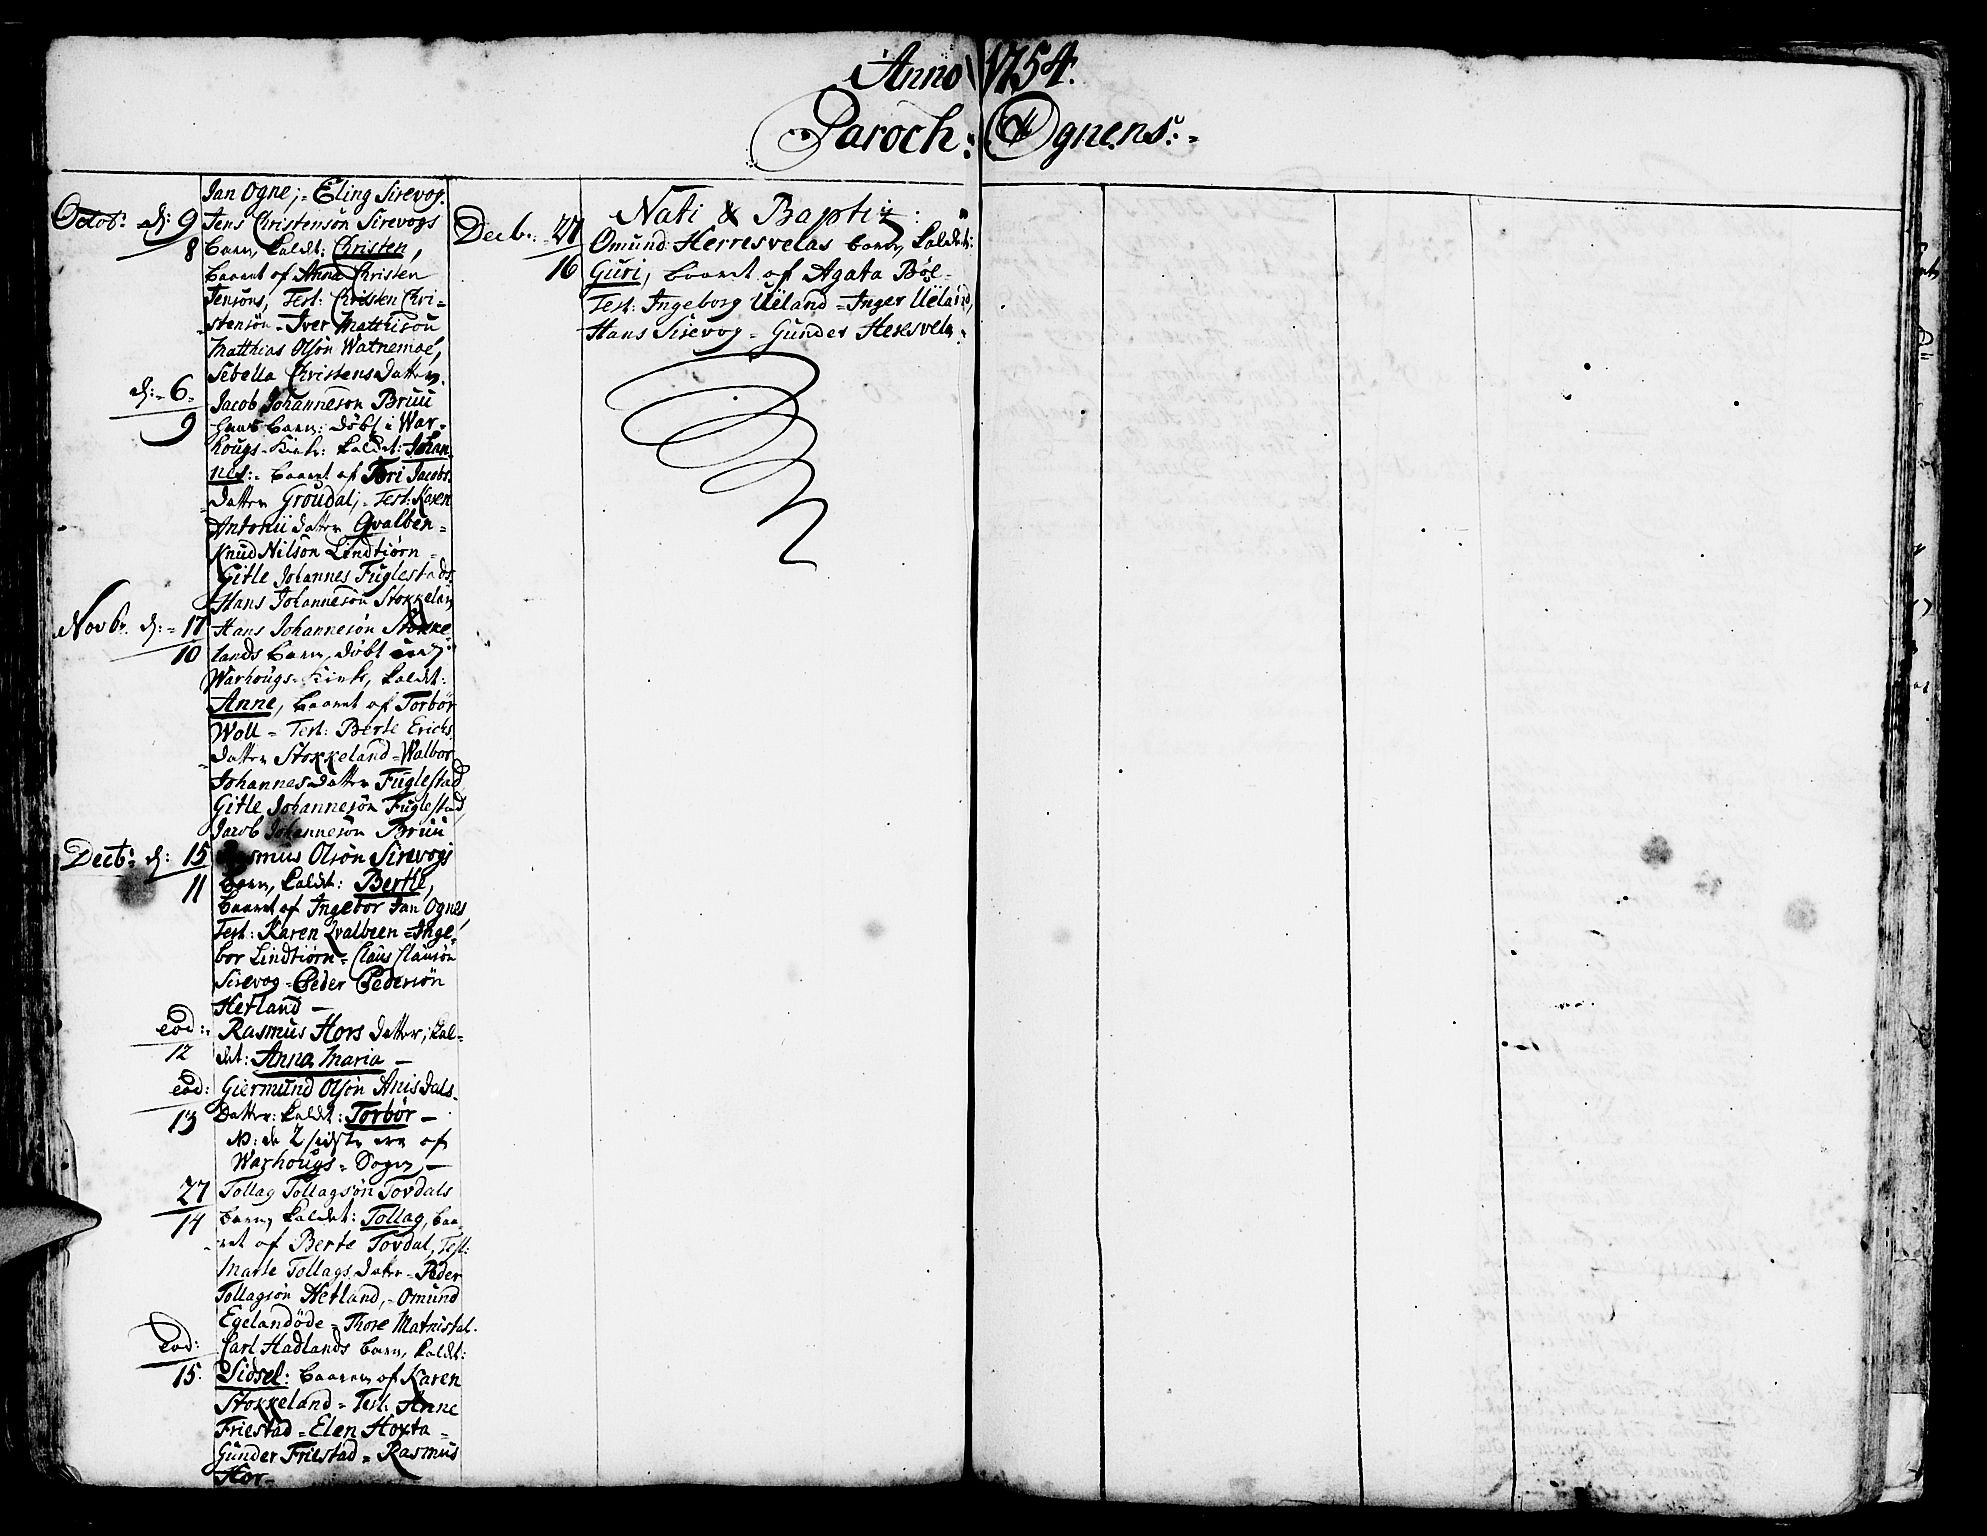 Anno 1754.
Paroch: Ognens:
Jan Ogne; - Eling Sirevog.
Octob: d: 9 Jens Christensön Sirevogs
8 barn, kaldt: Christen,
baaret af Anna Christen
Jensöns, Test: Christen Chri-
stensön - Iver Matthisön
Matthias Olsön Watnemoe,
Sebella Christensdatter.
d: - 6 - Jacob Johannesön Bruu
9 hans barn: döbt i War-
hougs - Kirke: kaldt: Johan-
nes: - baaret af Tori Jacobs-
datter Groudal; - Test: Karen
Antonii datter Qvalben -
Knud Nilsön Lindtiörn -
Gitle Johannes Fuglestads
Hans Johannesön Stokkelan
Novb. d: - 17 Hans Johannesön Stokke-
10 lands barn, döbt udj
Warhougs - Kirke, kaldt:
Anne, baaret af Torbör
Woll - Test: Berte Erichs
datter Stokkeland - Walbor
Johannesdatter Fuglestad
Gitle Johannesön Fuglestad,
Jacob Johannesön Bruu
Decb: d: 15 Rasmus Olsön Sirevogs
11 barn, kaldt: Berthe,
baaret af Ingebor Jan Ognes,
Test: Karen Qvalbeen - Inge-
bor Lindtiörn - Claus Clausön
Sirevog - Peder Pedersön
Hetland -
eod: - Rasmus Hors datter, kal-
12 det: Anna Maria -
eod: Giermund Olsön Anisdals-
13 Datter: kaldt: Torbör -
NB: de 2 sidste ere af
Warhougs - Sogn, -
27 Tollag Tollagsön Tovdals
14 barn, kaldet: Tollag, baa-
ret af Berte Tovdal, Test:
Marte Tollags dater - Peder
Tollagsön Hetland, - Omund
Egelandöde - Thore Matnistal.
Eod: Carl Hadlands barn, kaldt:
15. Sidsel: baaren af Karen
Stokkeland - Test: Anne
Friestad - Elen Hoxta -
Gunder Friestad - Rasmus
Hor -
Nati & Baptiz:
Decb: - 27 Omund Herresvelas barn, kaldet:
16 Guri, baaret af Agata Böe -
Test: Ingeborg Ueland - Inger Ueland,
Hans Sirevog - Gunder Hersvela: